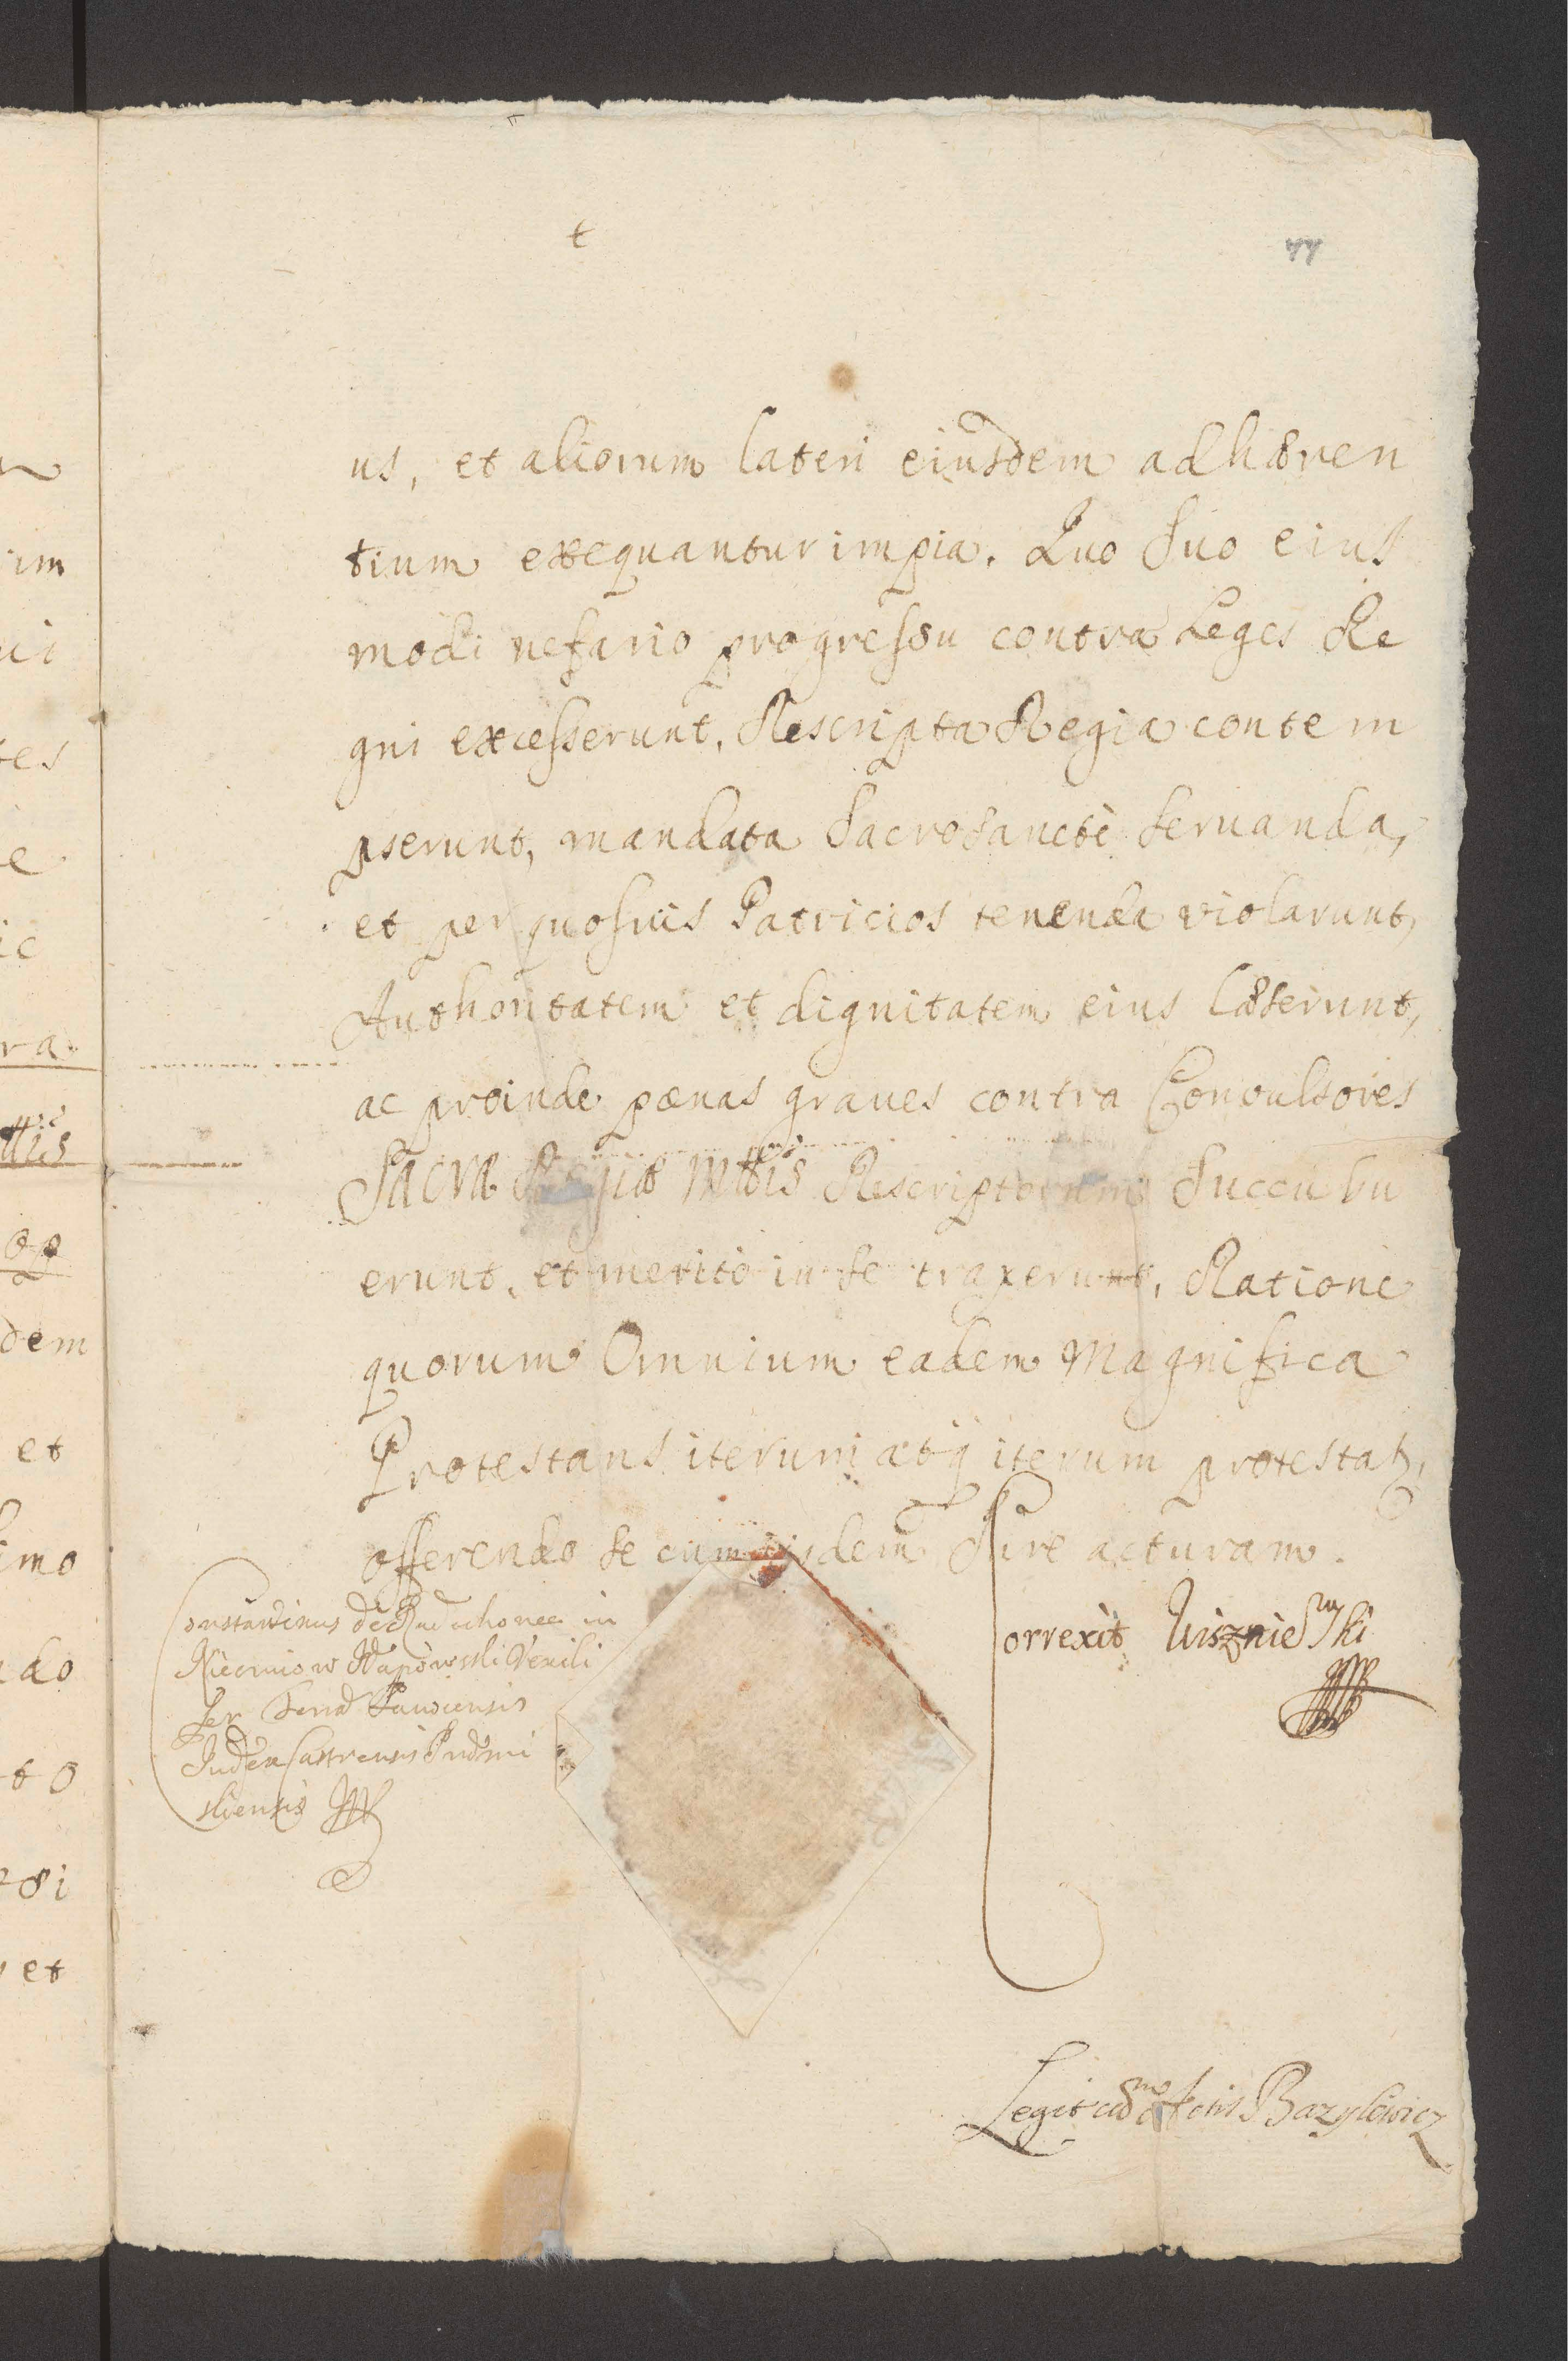 t
44
us, et aliorum lateri eiusdem adhæren
tium exequantur impia. Quo suo eius
modi nefario progressu contra Leges Re
gni excesserunt, Rescripta Regia contem
pserunt, mandata Sacrosanctè seruanda,
et per quosuis Patricios tenenda violarunt,
Authoritatem et dignitatem eius læserunt,
ac proinde pænas graues contra Conuulsores
Sacræ Regiæ Mttis Rescriptorum succubu
erunt, et meritò in se traxerunt, Ratione
quorum Omnium eadem Magnifica
Protestans iterum atq iterum protestatz,
offerendo se cum eisdem Iure acturam.
Constantinus de in
Niecmiow
Ser Sanocensis
Iudex Castrensis Prӕmi
sliensis
Correxit Wisznieski
Legit cum Actis Bazylewicz